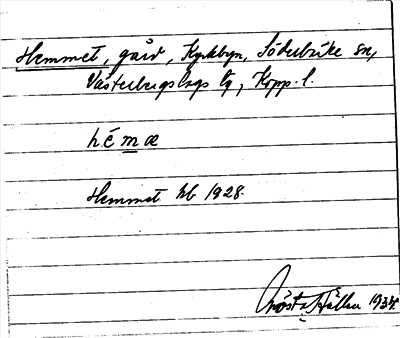 Hemmet, gård, Kyrkbyn, Söderbärke sn,
Västerbergslags tg, Kopp. l.
hémæ
Hemmet hb 1928.
Gösta Fällu 1934.